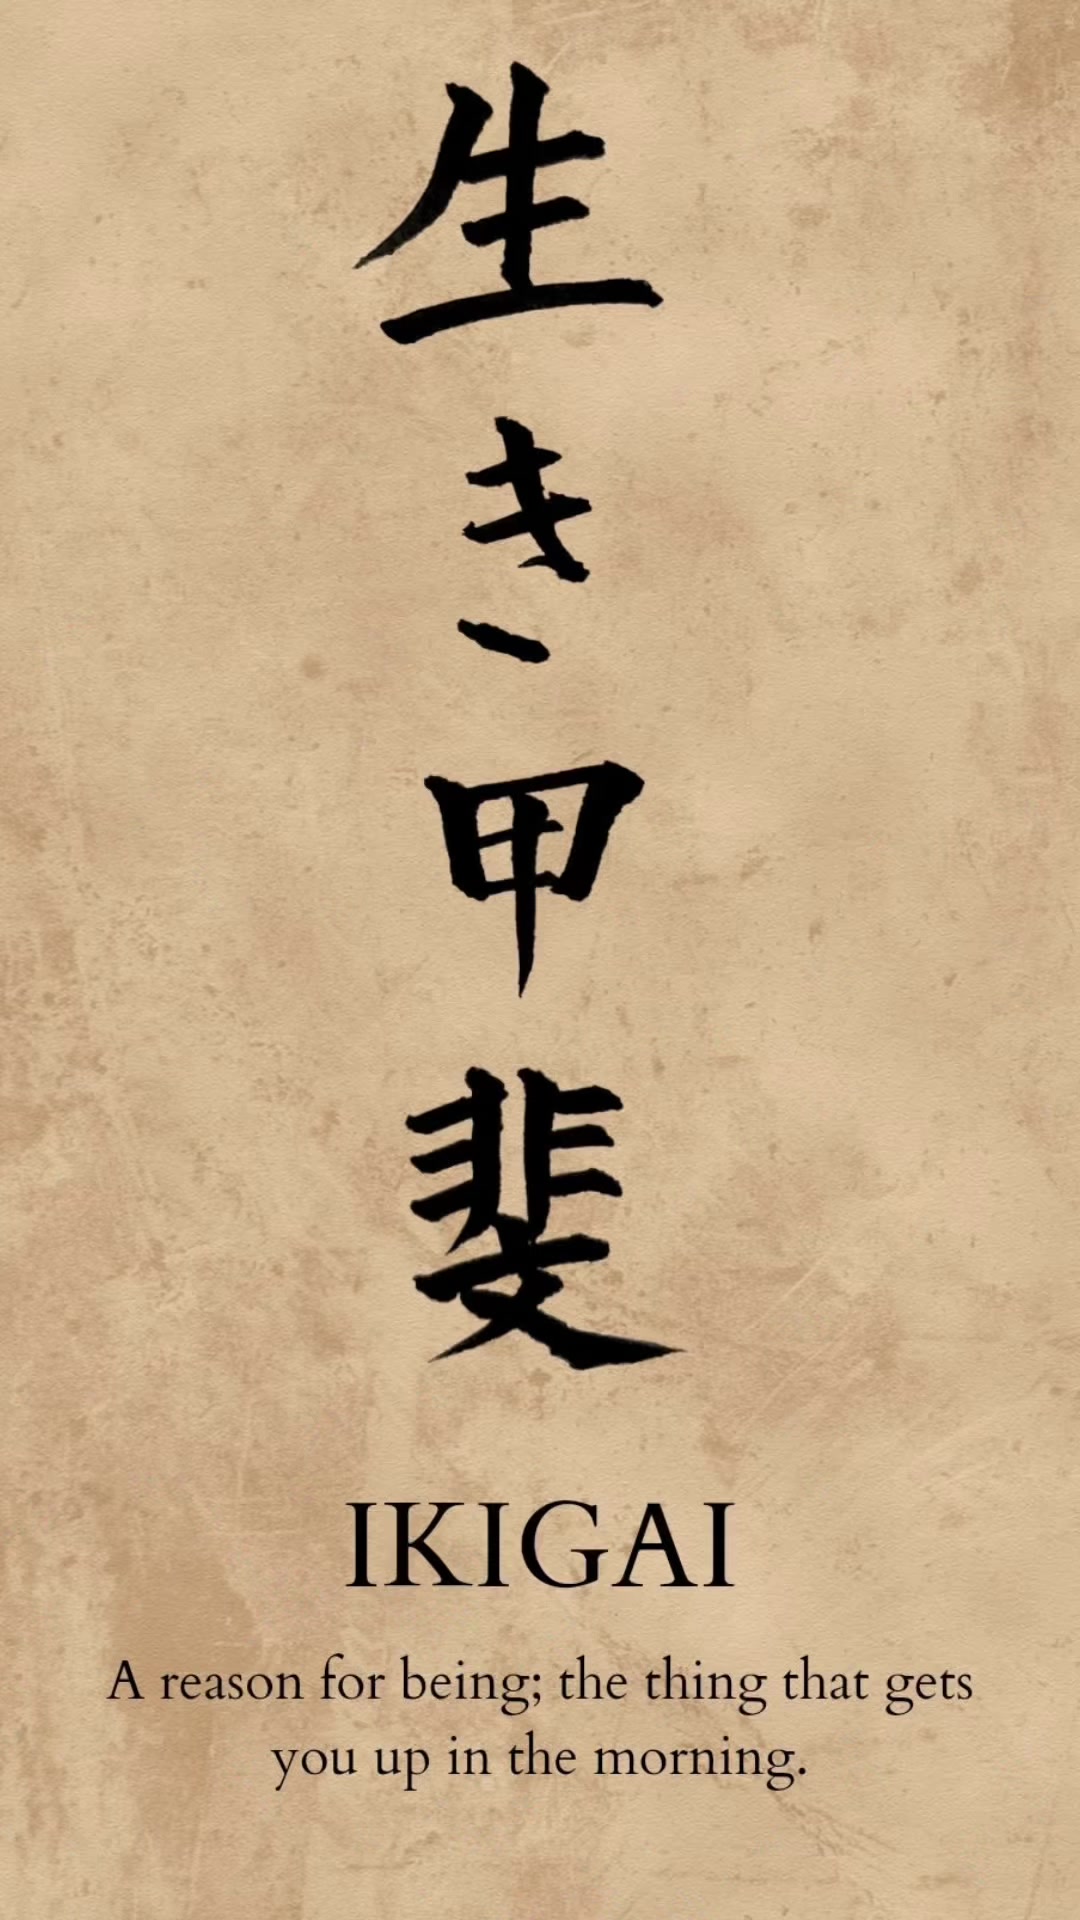 生き甲斐
IKIGAI
A reason for being; the thing that gets
you up in the morning.